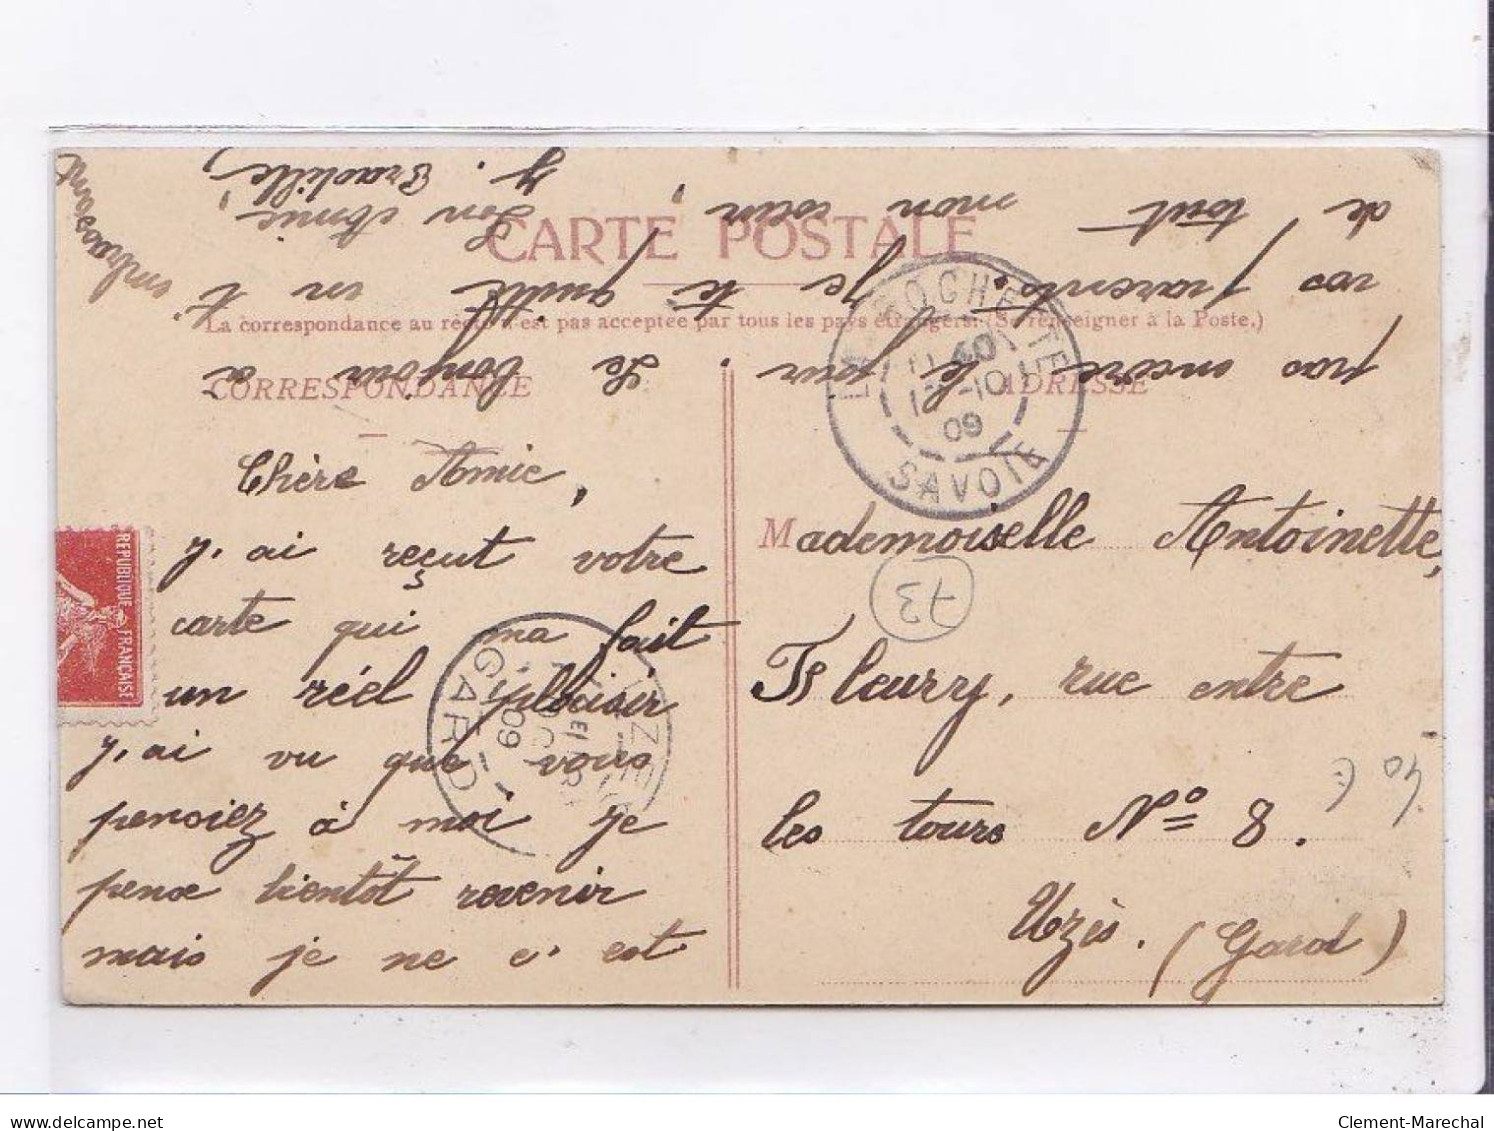 CARTE POSTALE
La correspondance au recto n'est pas acceptée par tous les pays étrangers. (Se renseigner à la Poste.)
CORRESPONDANCE
ADRESSE
Chère Amie,
j'ai reçut votre
carte qui ma fait
un réel plaisir
j'ai vu que vous
pensiez à moi je
pense bientôt revenir
mais je ne c'est
pas encore le jour. Le bonjour a
vos parents. Je te quitte en t
embrassant
de tout mon cœur,
Ton Amie
Mademoiselle Antoinette,
Fleury, rue entre
les tours Nº 8.
Uzès. (Gard)
LA ROCHETTE
-10
09
SAVOIE
UZES
09
GARD
REPUBLIQUE FRANCAISE
73
40 €
delcampe.net
Clement-Marechal